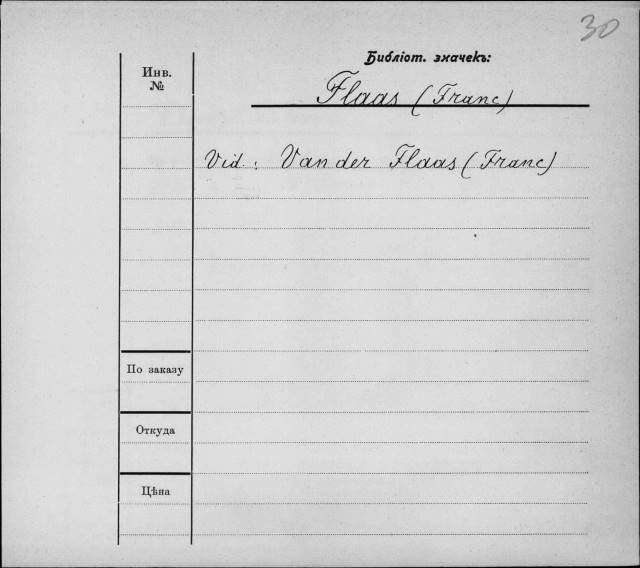 30
Библіот. значекъ:
Инв.
№
Flaas (Franc)
Vid.: Van der Flaas (Franc)
По заказу
Откуда
Цѣна